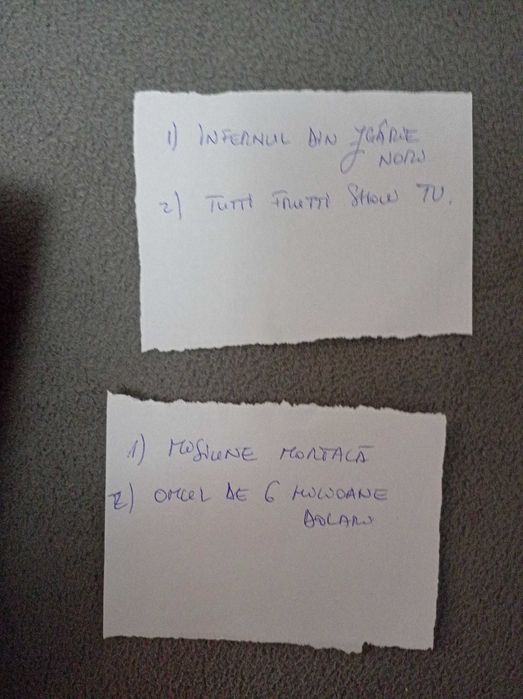 1) INFERNUL DIN ZGÂRIE
NORI
2) TUTTI FRUTTI SHOW TV.
1) MISIUNE MORTALĂ
2) OMUL DE 6 MILIOANE
DOLARI